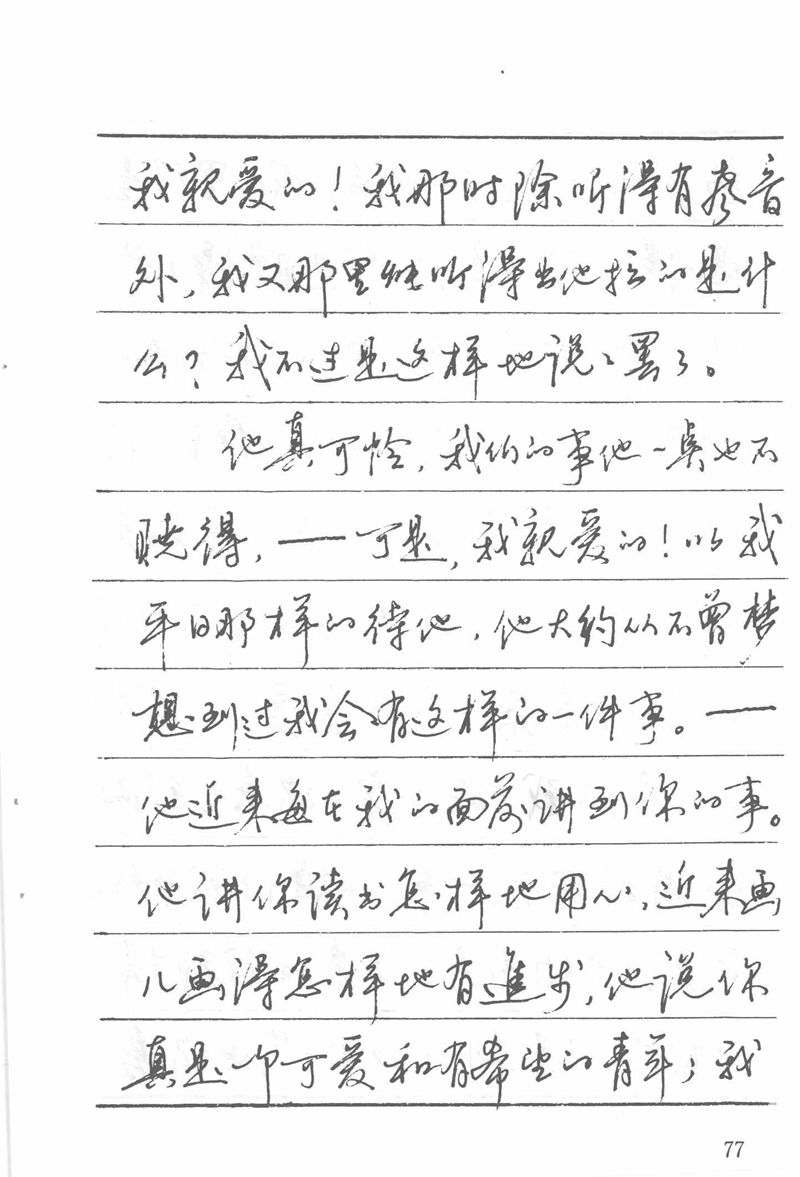 我亲爱的！我那时除听得有琴音
外，我又那里能听得出他拉的是什
么？我不过是这样地说说罢了。
他真可怜，我们的事他一点也不
晓得，——可是，我亲爱的！以我
平日那样的待他，他大约从不曾梦
想到过我会有这样的一件事。——
他近来每在我的面前讲到你的事。
他讲你读书怎样地用心，近来画
儿画得怎样地有進步，他说你
真是个可爱和有希望的青年；我
77